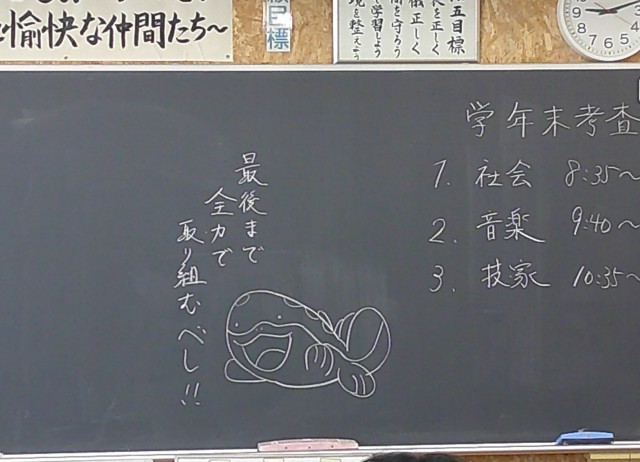 愉快な仲間たち〜
標
五目標
正しく
正しく
守ろう
学習しよう
を整えよう
学年末考査
1. 社会 8:35〜
2. 音楽 9:40〜
3. 技家 10:35〜
最後まで
全力で
取り組むべし!!